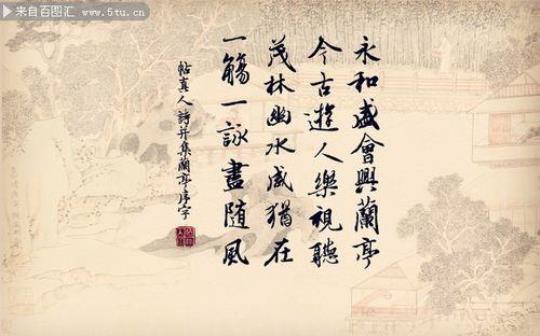 来自百图汇 www.5tu.cn
永和盛會興蘭亭
今古遊人樂視聽
茂林幽水咸猶在
一觴一詠盡隨風
帖真人詩并集蘭亭序字